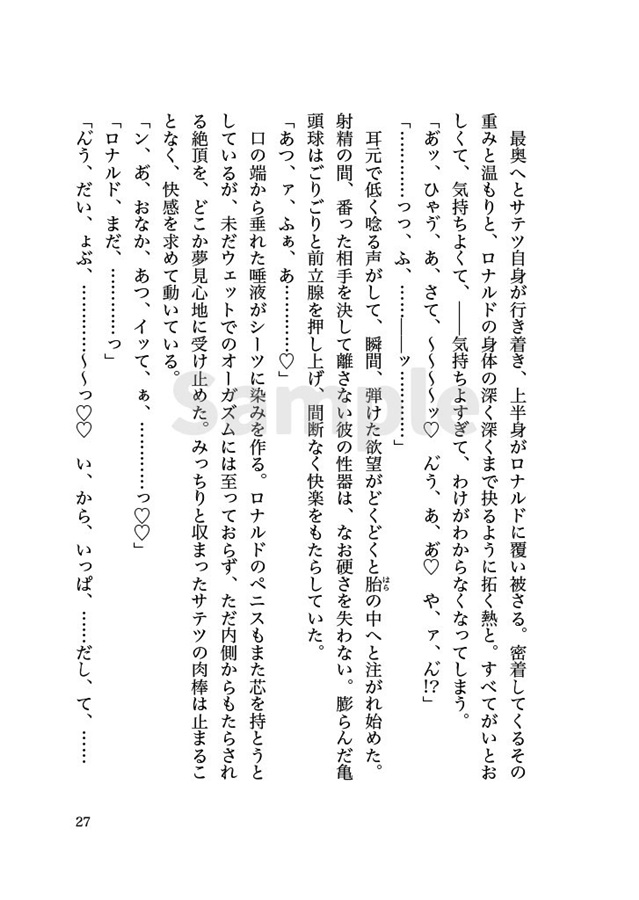 最奥へとサテツ自身が行き着き、上半身がロナルドに覆い被さる。密着してくるその
重みと温もりと、ロナルドの身体の深く深くまで抉るように拓く熱と。すべてがいとお
しくて、気持ちよくて、――気持ちよすぎて、わけがわからなくなってしまう。
「あ゙ッ、ひゃゔ、あ、さて、～～～～ッ♡　ん゙う、あ、あ゙♡　や、ァ、ん゙!?」
「…………っっ、ふ、……――ッ…………」
耳元で低く唸る声がして、瞬間、弾けた欲望がどくどくと胎はらの中へと注がれ始めた。
射精の間、番った相手を決して離さない彼の性器は、なお硬さを失わない。膨らんだ亀
頭球はごりごりと前立腺を押し上げ、間断なく快楽をもたらしていた。
「あつ、ァ、ふぁ、あ…………♡」
口の端から垂れた唾液がシーツに染みを作る。ロナルドのペニスもまた芯を持とうと
しているが、未だウェットでのオーガズムには至っておらず、ただ内側からもたらされ
る絶頂を、どこか夢見心地に受け止めた。みっちりと収まったサテツの肉棒は止まるこ
となく、快感を求めて動いている。
「ン、あ゙、おなか、あつ、イッて、ぁ、…………っ♡♡」
「ロナルド、まだ、…………っ」
「ん゙う、だい、ょぶ、…………～～っ♡♡　い、から、いっぱ、……だし、て、……
27
Sample